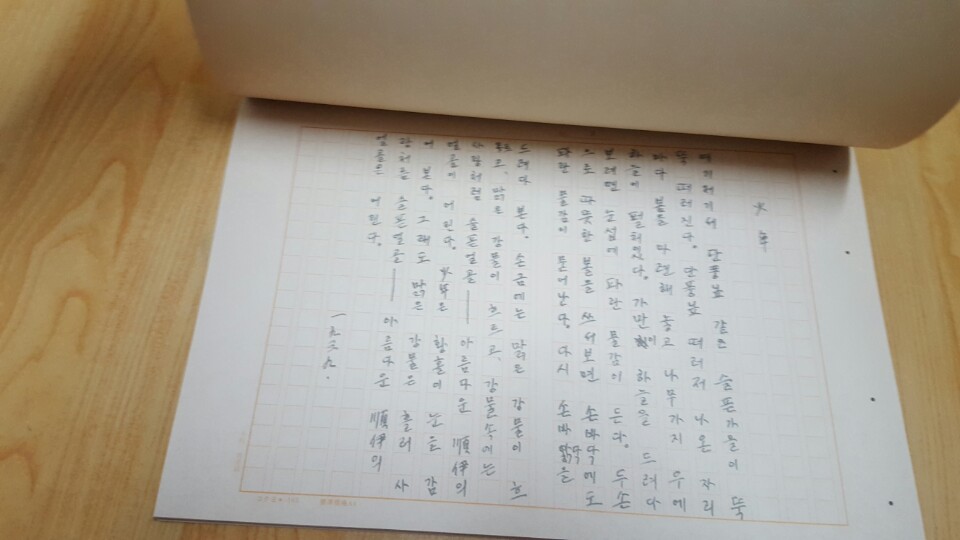 少年
여기저기서 단풍잎 같은 슬픈가을이 뚝
뚝 떠러진다. 단풍잎 떠러저 나온 자리
마다 봄을 마련해 놓고 나무가지 우에
하늘이 펄처있다. 가만이 하늘을 드려다
보려면 눈섭에 파란 물감이 든다. 두손
으로 따뜻한 볼을 쓰서보면 손바닥에도
파란 물감이 묻어난다. 다시 손바닥을
드려다 본다. 손금에는 맑은 강물이 흐
르고, 맑은 강물이 흐르고, 강물속에는
사랑처럼 슬픈얼골——아름다운 順伊의
얼골이 어린다. 少年은 황홀이 눈을 감
어 본다. 그래도 맑은 강물은 흘러 사
랑처럼 슬픈얼골——아름다운 順伊의
얼골은 어린다.
一九三九.